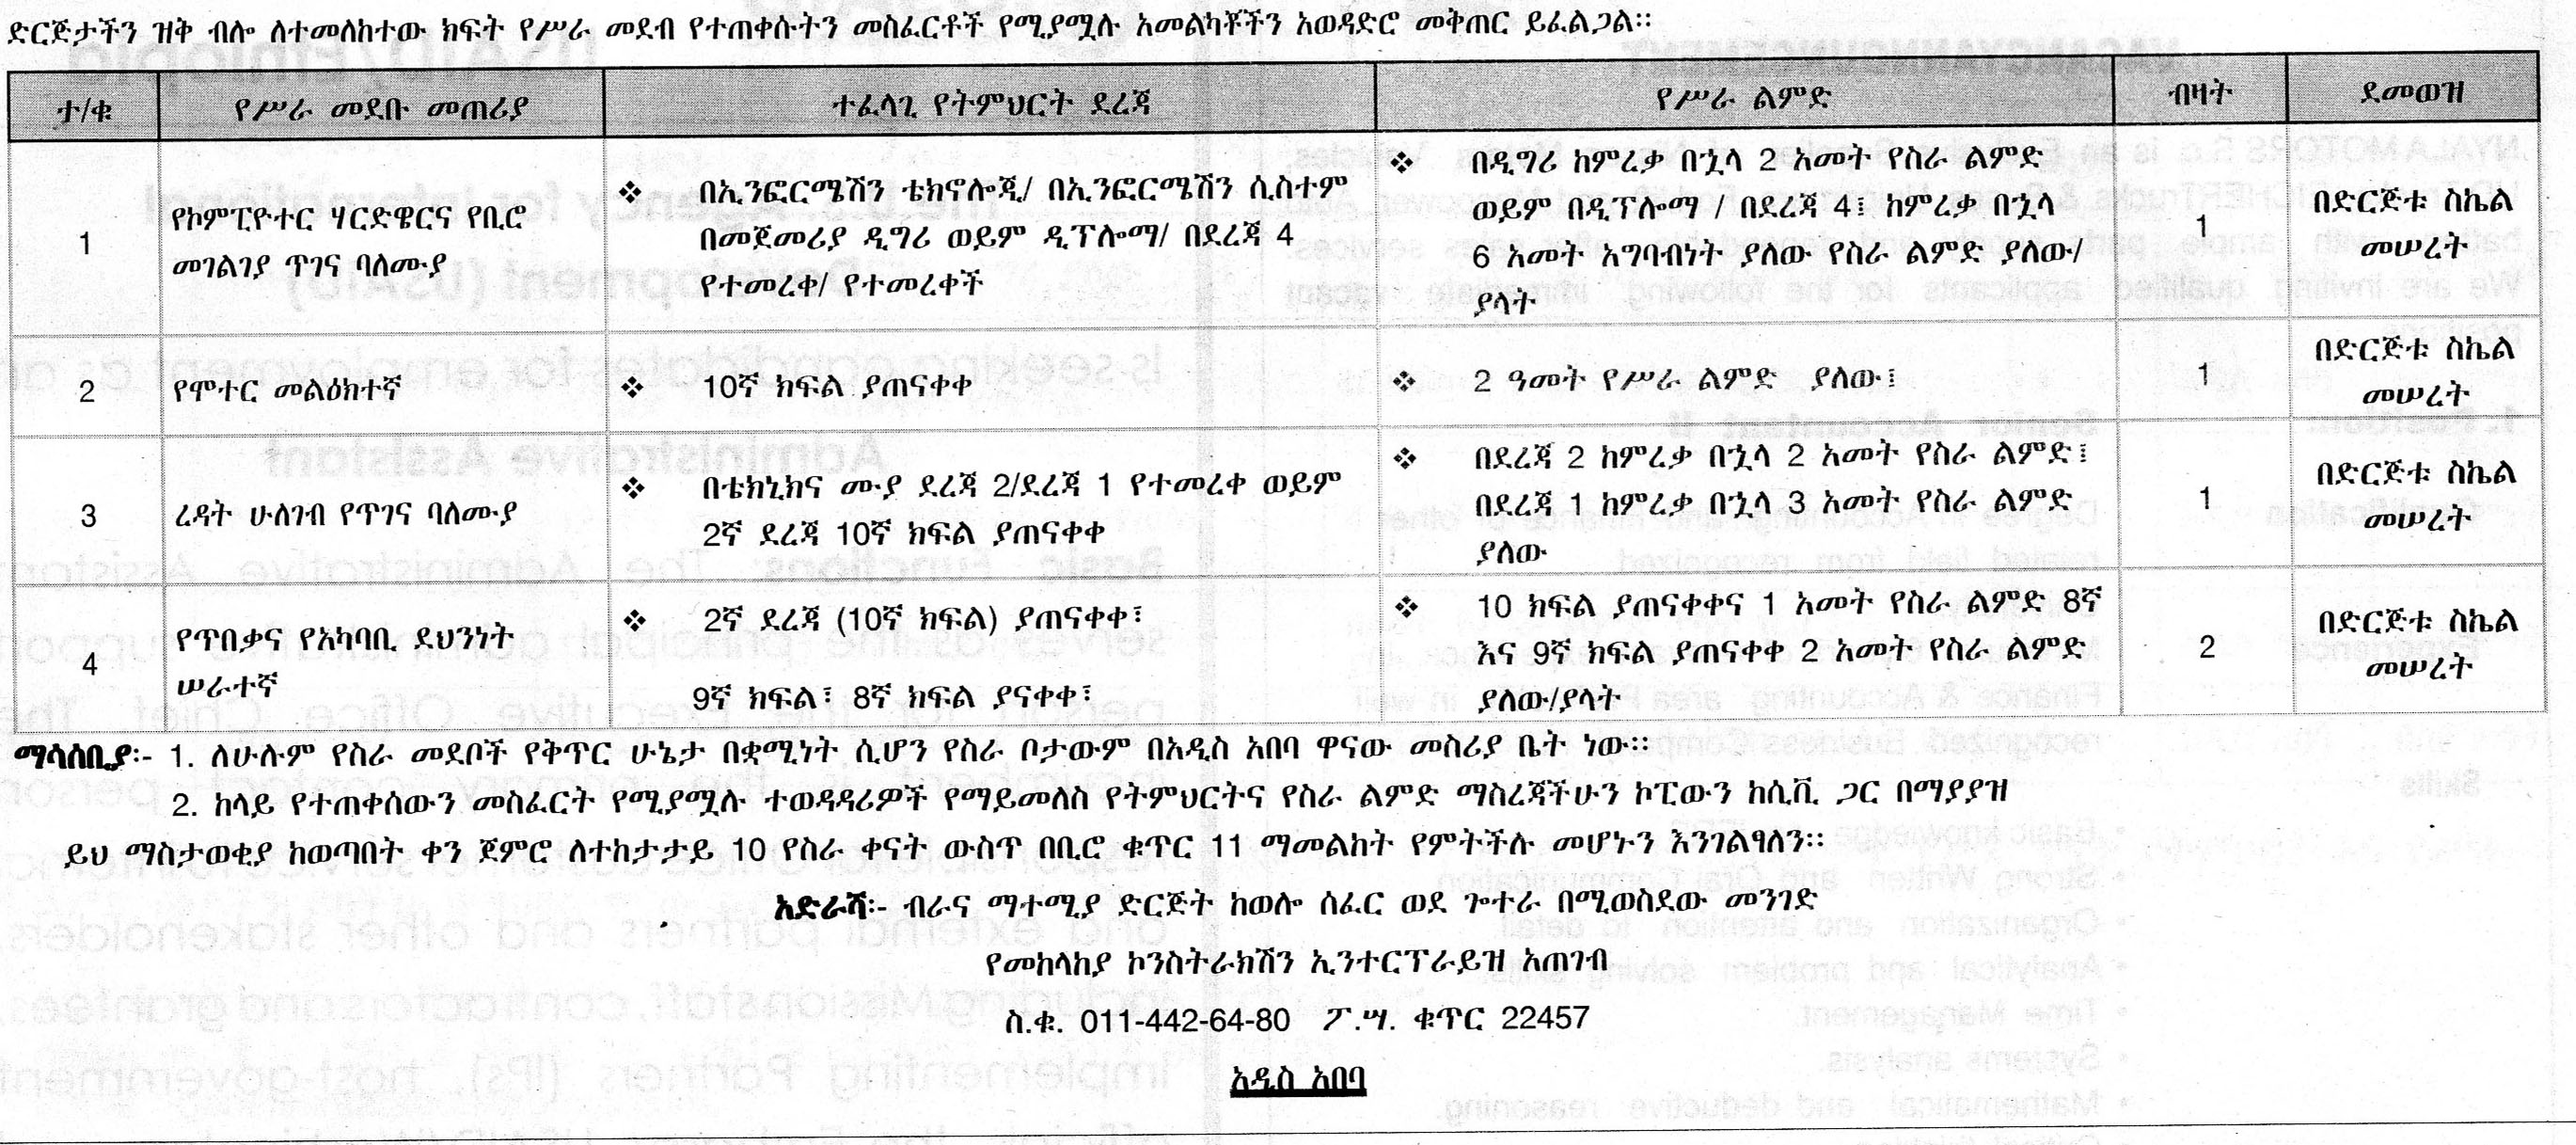 ድርጅታችን ዝቅ ብሎ ለተመለከተው ክፍት የሥራ መደብ የተጠቀሱትን መስፈርቶች የሚያሟሉ አመልካቾችን አወዳድሮ መቅጠር ይፈልጋል።
ተ/ቁ የሥራ መደቡ መጠሪያ ተፈላጊ የትምህርት ደረጃ የሥራ ልምድ ብዛት ደመወዝ
1
የኮምፒዮተር ሃርድዌርና የቢሮ
መገልገያ ጥገና ባለሙያ
❖ በኢንፎርሜሽን ቴክኖሎጂ/ በኢንፎርሜሽን ሲስተም
በመጀመሪያ ዲግሪ ወይም ዲፕሎማ/ በደረጃ 4
የተመረቀ/ የተመረቀች
❖ በዲግሪ ከምረቃ በኋላ 2 አመት የስራ ልምድ
ወይም በዲፕሎማ / በደረጃ 4፤ ከምረቃ በኋላ
6 አመት አግባብነት ያለው የስራ ልምድ ያለው/
ያላት
1
በድርጅቱ ስኬል
መሠረት
2
የሞተር መልዕክተኛ
❖ 10ኛ ክፍል ያጠናቀቀ
❖ 2 ዓመት የሥራ ልምድ ያለው፤
1
በድርጅቱ ስኬል
መሠረት
3
ረዳት ሁለገብ የጥገና ባለሙያ
❖ በቴክኒክና ሙያ ደረጃ 2/ደረጃ 1 የተመረቀ ወይም
2ኛ ደረጃ 10ኛ ክፍል ያጠናቀቀ
❖ በደረጃ 2 ከምረቃ በኋላ 2 አመት የስራ ልምድ፤
በደረጃ 1 ከምረቃ በኋላ 3 አመት የስራ ልምድ
ያለው
1
በድርጅቱ ስኬል
መሠረት
4
የጥበቃና የአካባቢ ደህንነት
ሠራተኛ
❖ 2ኛ ደረጃ (10ኛ ክፍል) ያጠናቀቀ፣
9ኛ ክፍል፣ 8ኛ ክፍል ያናቀቀ፣
❖ 10 ክፍል ያጠናቀቀና 1 አመት የስራ ልምድ 8ኛ
እና 9ኛ ክፍል ያጠናቀቀ 2 አመት የስራ ልምድ
ያለው/ያላት
2
በድርጅቱ ስኬል
መሠረት
ማሳሰቢያ፡- 1. ለሁሉም የስራ መደቦች የቅጥር ሁኔታ በቋሚነት ሲሆን የስራ ቦታውም በአዲስ አበባ ዋናው መስሪያ ቤት ነው።
2. ከላይ የተጠቀሰውን መስፈርት የሚያሟሉ ተወዳዳሪዎች የማይመለስ የትምህርትና የስራ ልምድ ማስረጃችሁን ኮፒውን ከሲቪ ጋር በማያያዝ
ይህ ማስታወቂያ ከወጣበት ቀን ጀምሮ ለተከታታይ 10 የስራ ቀናት ውስጥ በቢሮ ቁጥር 11 ማመልከት የምትችሉ መሆኑን እንገልፃለን።
አድራሻ፡- ብራና ማተሚያ ድርጅት ከወሎ ሰፈር ወደ ጐተራ በሚወስደው መንገድ
የመከላከያ ኮንስትራክሽን ኢንተርፕራይዝ አጠገብ
ስ.ቁ. 011-442-64-80 ፖ.ሣ. ቁጥር 22457
አዲስ አበባ